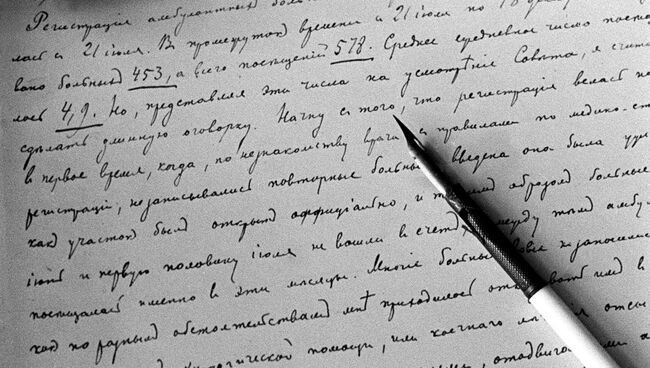 Регистрація амбулантныхъ боль
лась съ 21 іюля. Въ промежутокъ времени съ 21 іюля по
вано больныхъ 453, а всего посещеній 578. Среднее ежедневное число посѣ
лось 4,9. Но, представляя эти числа на усмотрѣніе Совѣта, я счита
сдѣлать длинную оговорку. Начну съ того, что регистрація велась не
въ первое время, когда, по незнакомству врача съ правилами по медико-ст
регистраціи, не записывались повторные боль введена она была
какъ участокъ былъ открытъ оффиціально, и образомъ больные
іюнь и первую половину іюля не вошли въ счетъ, между тѣмъ амбу
посѣщалась именно въ эти мѣсяцы. Многіе больные
какъ по разнымъ обстоятельствамъ мнѣ приходилось имъ въ
гической помощи, или коечнаго отсы
отодвига